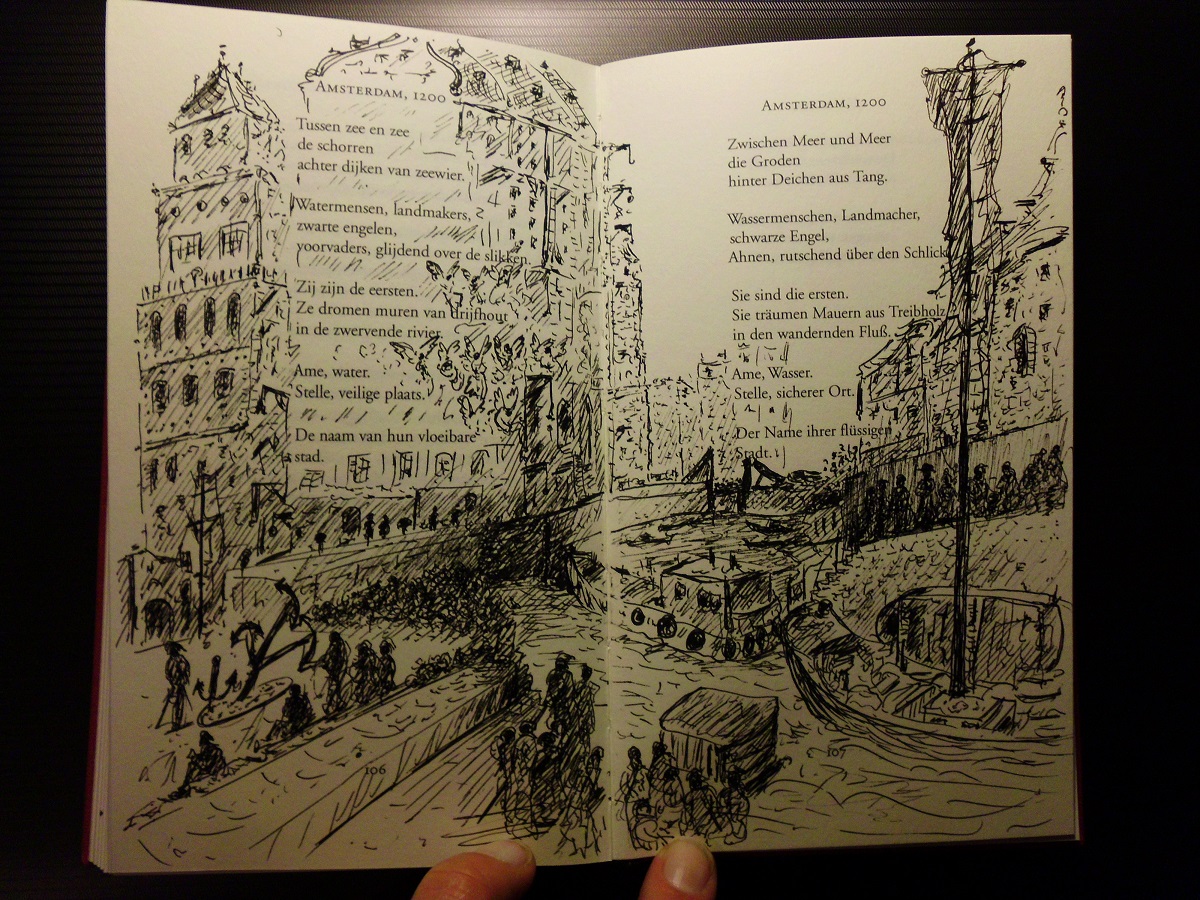 AMSTERDAM, 1200
Tussen zee en zee
de schorren
achter dijken van zeewier.
Watermensen, landmakers,
zwarte engelen,
voorvaders, glijdend over de slikken.
Zij zijn de eersten.
Ze dromen muren van drijfhout
in de zwervende rivier.
Ame, water.
Stelle, veilige plaats.
De naam van hun vloeibare
stad.
106
AMSTERDAM, 1200
Zwischen Meer und Meer
die Groden
hinter Deichen aus Tang.
Wassermenschen, Landmacher,
schwarze Engel,
Ahnen, rutschend über den Schlick.
Sie sind die ersten.
Sie träumen Mauern aus Treibholz
in den wandernden Fluß.
Ame, Wasser.
Stelle, sicherer Ort.
Der Name ihrer flüssigen
Stadt.
107